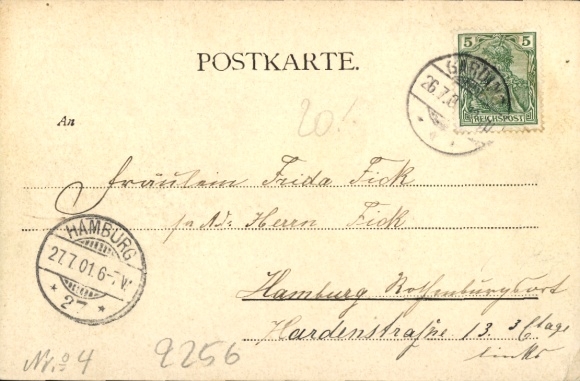 POSTKARTE.
5 5
REICHSPOST
GARDING
26.7.
An
20.
Fräulein Frida Fick
p. Adr. Herrn Fick
Hamburg Rothenburgsort
Hardenstraße 13. 3 Etage
links
HAMBURG
27.7.01.6-7V.
* 27 *
Nr. 4
2256